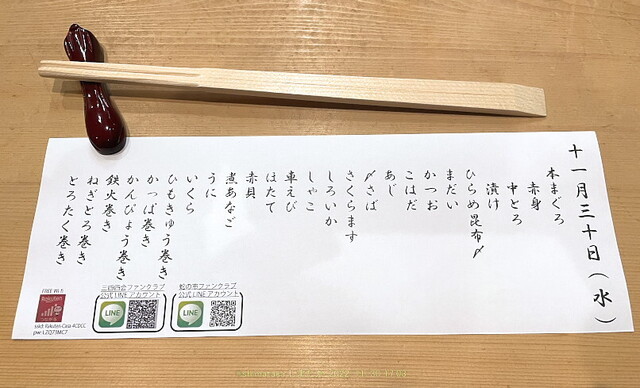 十一月三十日(水)
本まぐろ
赤身
中とろ
漬け
ひらめ昆布〆
まだい
かつお
こはだ
あじ
〆さば
さくらます
しろいか
しゃこ
車えび
はたて
赤貝
煮あなご
うに
いくら
ひもきゅう巻き
かっぱ巻き
かんぴょう巻き
鉄火巻き
ねぎとろ巻き
とろたく巻き
蛇の市ファンクラブ
公式LINEアカウント
LINE
三四四会ファンクラブ
公式LINEアカウント
LINE
FREE Wi-Fi
Rakuten